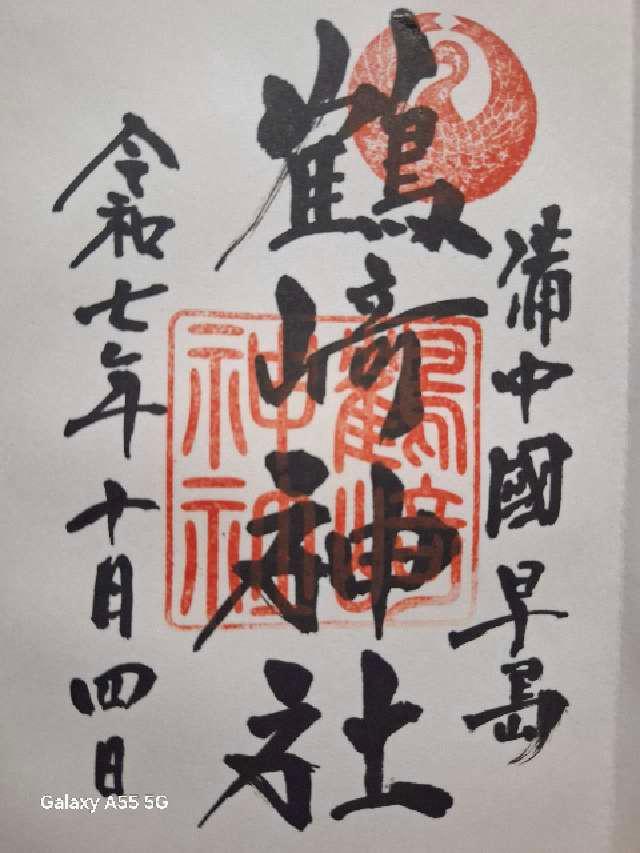 備中國早島
鶴﨑神社
鶴﨑神社
令和七年十月四日
Galaxy A55 5G